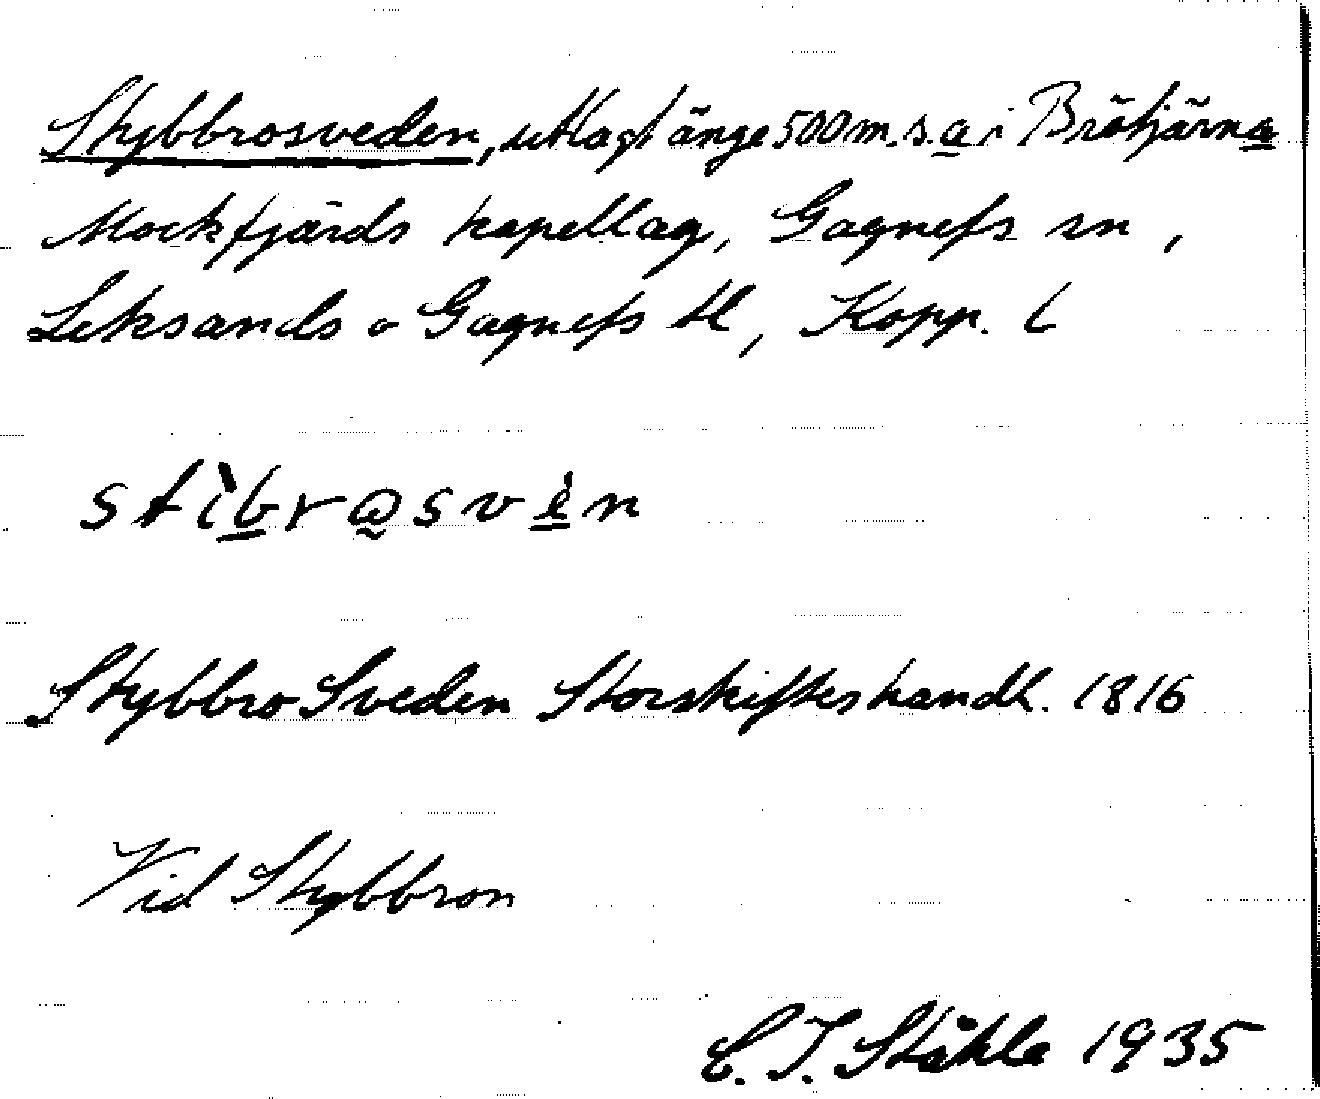 Stybbrosveden, utlagt änge 500 m. s. a i Brötjärna
Mockfjärds kapellag, Gagnefs sn,
Leksands o Gagnefs tl, Kopp. l
stìbrasvèn
Stybbro Sveden Storskifteshandl. 1816
Vid Stybbron
C. I. Ståhle 1935